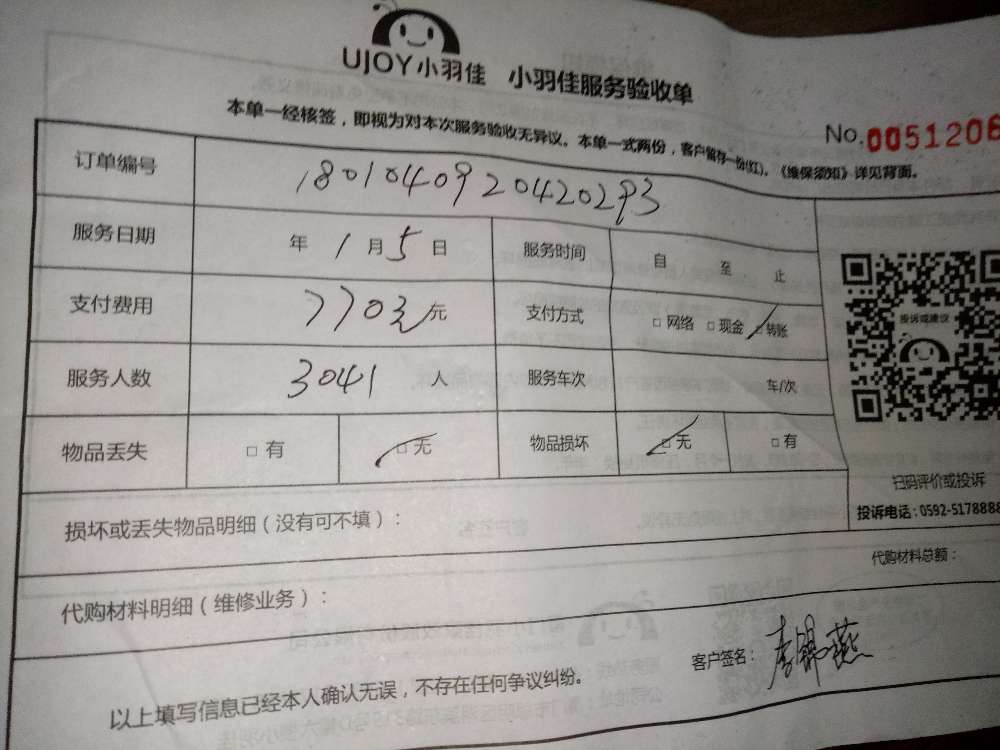 UJOY小羽佳 小羽佳服务验收单
本单一经核签，即视为对本次服务验收无异议。本单一式两份，客户留存一份(红)。《维保须知》详见背面。
No.0051206
订单编号 1801040920420293
服务日期 年 1 月 5 日 服务时间 自 至 止
支付费用 770元 元 支付方式 □ 网络 □ 现金 □ 转账
投诉或建议
服务人数 3041 人 服务车次 车/次
物品丢失 □ 有 □ 无 物品损坏 □ 无 □ 有
扫码评价或投诉
投诉电话：0592-5178888
损坏或丢失物品明细（没有可不填）：
代购材料明细（维修业务）： 代购材料总额：
以上填写信息已经本人确认无误，不存在任何争议纠纷。 客户签名：李锦燕